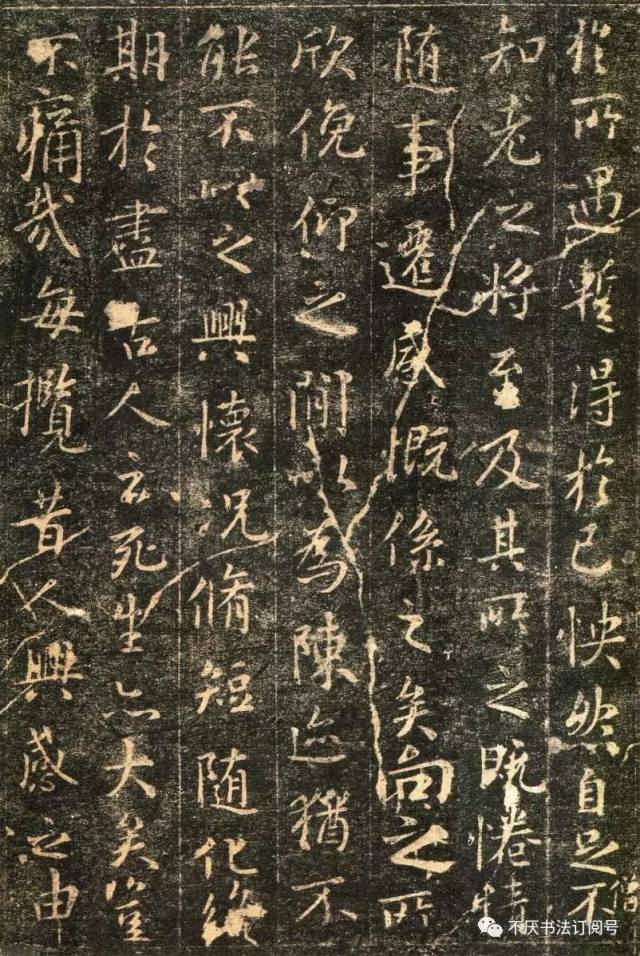 於所遇暫得於己怏然自足不
僧
知老之將至及其所之既惓情
随事遷感慨係之矣向之所
欣俛仰之間以為陳迹猶不
能不以之興懷況脩短随化終
期於盡古人云死生亦大矣豈
不痛哉每攬昔人興感之由
不厌书法订阅号